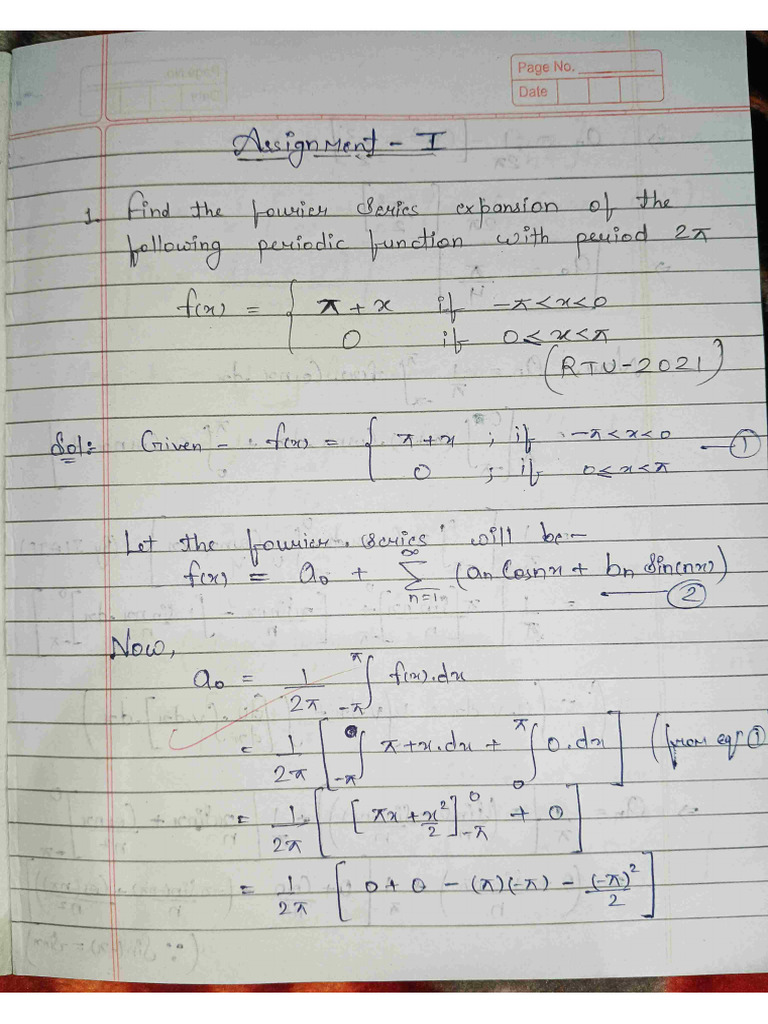 Page No.
Date
Assignment - I
1. Find the fourier series expansion of the
following periodic function with period 2π
f(x) = { π + x if -π < x < 0
0 if 0 < x < π
(RTU-2021)
Sol:- Given - f(x) = { π + x ; if -π < x < 0 — ①
0 ; if 0 < x < π
Let the fourier series will be -
f(x) = a₀ + ∑ₙ₌₁^∞ (aₙ cosnx + bₙ sin(nx)) — ②
Now,
a₀ = 1/2π ∫_{-π}^{π} f(x).dx
= 1/2π [ ∫_{-π}^{0} π+x.dx + ∫_{0}^{π} 0.dx ] (from eqⁿ ①)
= 1/2π [ [πx + x²/2]_{-π}^{0} + 0 ]
= 1/2π [ 0 + 0 - (π)(-π) - (-π)²/2 ]